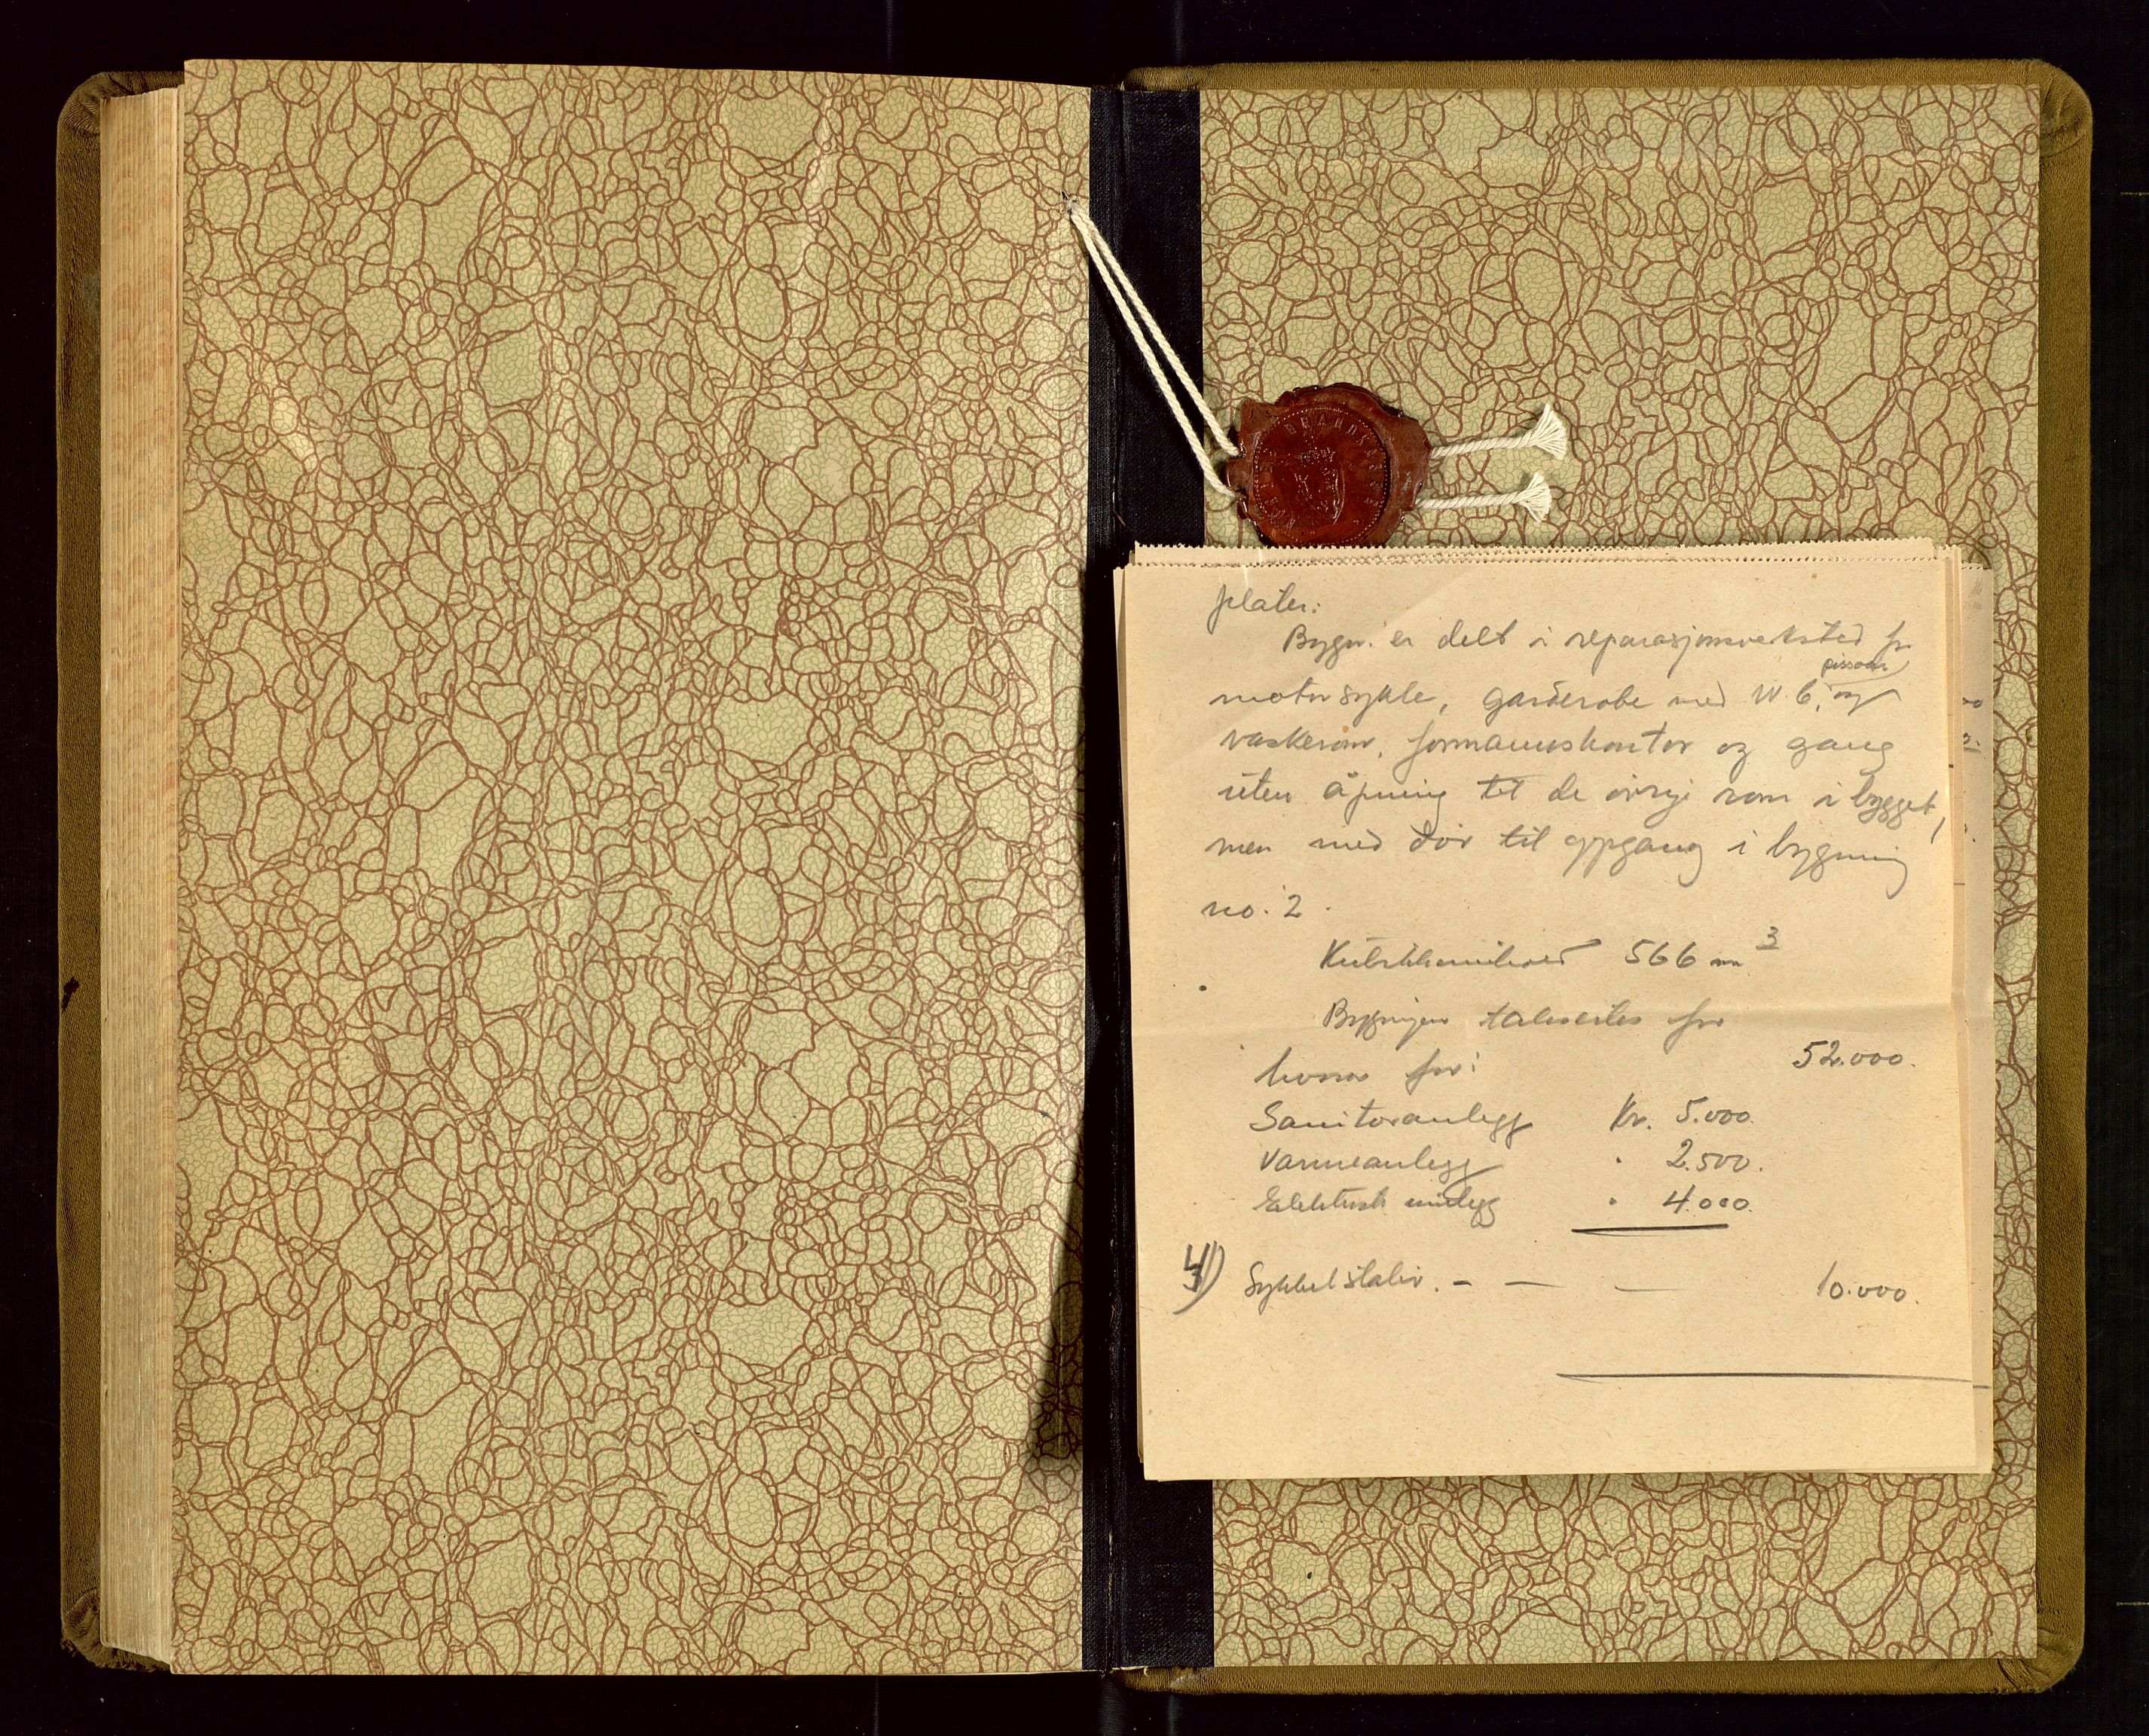 plater.
Bygn. er delt i reparasjonsverksted for
pissoar
motorsykle, garderobe med W.C, og
vaskerom, formannskontor og gang
uten åpning til de øvrige rom i bygget,
men med dör til oppgang i bygning
no. 2.
Kubikkinnhold 566 m³
Bygningen takseres for
52.000.
hvorav for:
Sanitæranlegg Kr. 5.000.
Varmeanlegg " 2.500.
Elektrisk innlegg " 4.000.
4) Sykkelstativ. - — — 10.000.